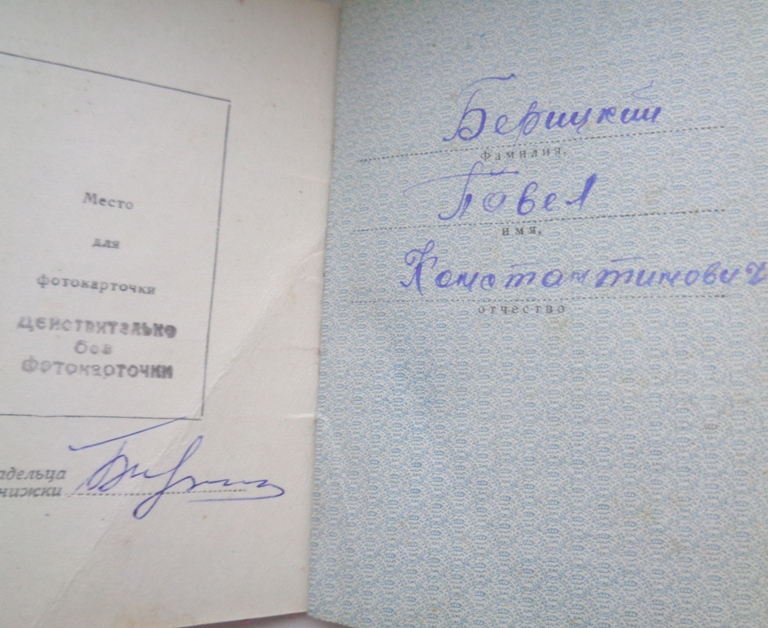 Место
для
фотокарточки
ДЕЙСТВИТЕЛЬНО
без
ФОТОКАРТОЧКИ
адельца
нижки
Бевицкий
фамилия,
Павел
имя,
Константинович
отчество